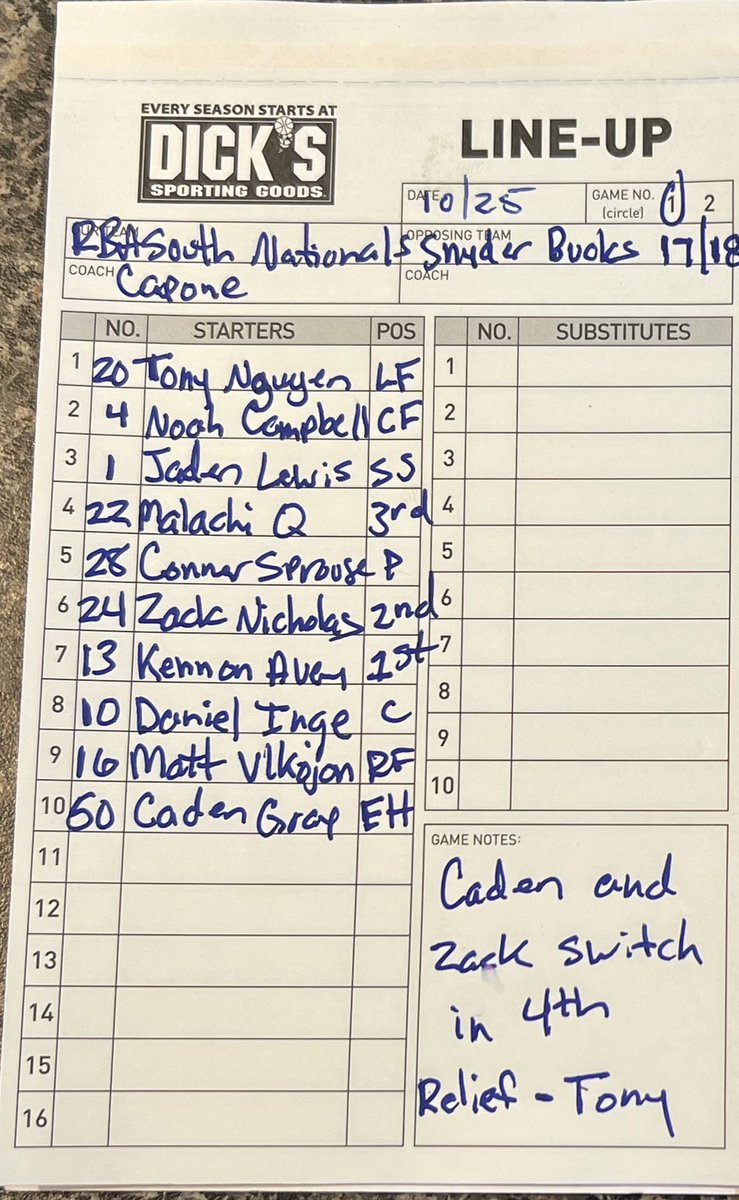 EVERY SEASON STARTS AT
DICK'S
SPORTING GOODS
LINE-UP
DATE 10/25
GAME NO. (circle) 1 2
OUR TEAM RBA South Nationals
OPPOSING TEAM Snyder Bucks 17/18
COACH Capone
COACH
NO. STARTERS POS
1 20 Tony Nguyen LF
2 4 Noah Campbell CF
3 1 Jaden Lewis SS
4 22 Malachi Q 3rd
5 28 Connar Sprouse P
6 24 Zack Nicholas 2nd
7 13 Kennon Avery 1st
8 10 Daniel Inge C
9 16 Matt RF
10 50 Caden Gray EH
11
12
13
14
15
16
NO. SUBSTITUTES
1
2
3
4
5
6
7
8
9
10
GAME NOTES:
Caden and
Zack switch
in 4th
Relief - Tony